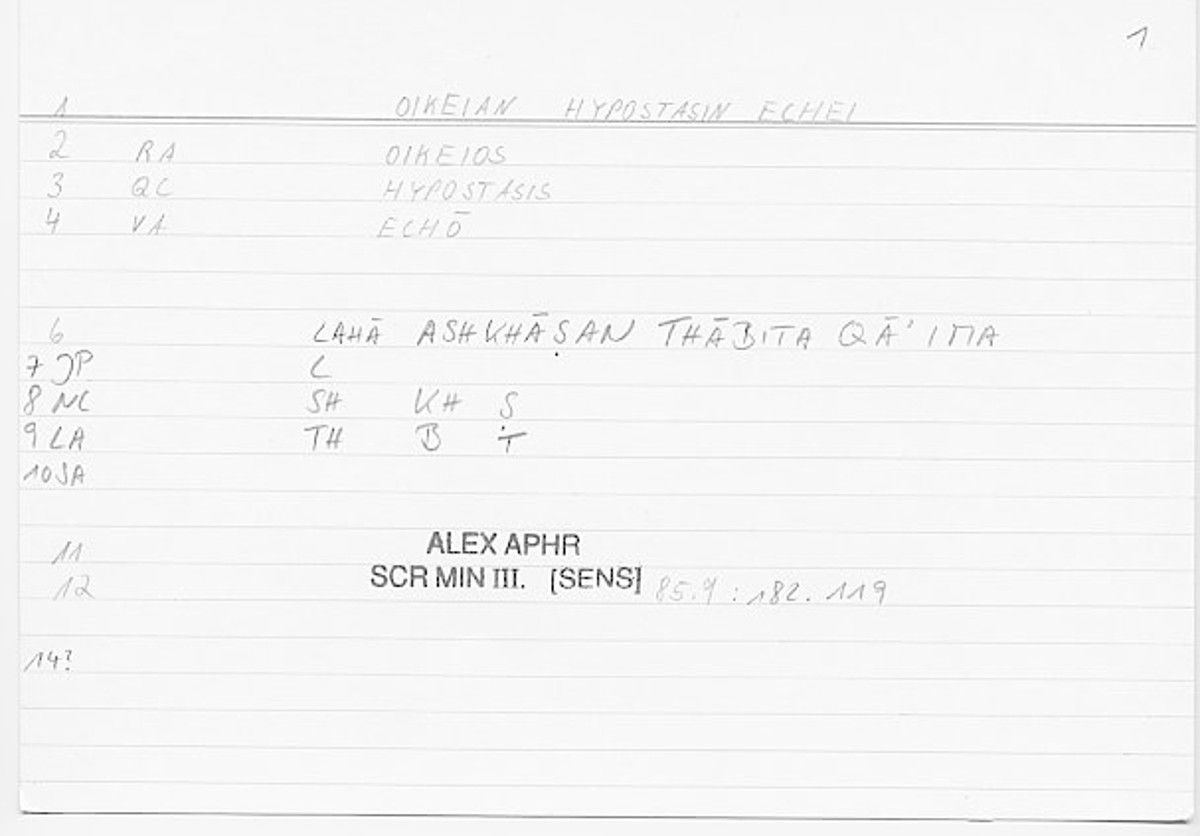 1
1 OIKEIAN HYPOSTASIN ECHEI
2 RA OIKEIOS
3 QC HYPOSTASIS
4 VA ECHŌ
6 LAHĀ ASHKHĀṢAN THĀBITA QĀ'IMA
7 JP L
8 NC SH KH Ṣ
9 LA TH B T
10 JA
11 ALEX APHR
12 SCR MIN III. [SENS] 85.9 : 182.119
14?